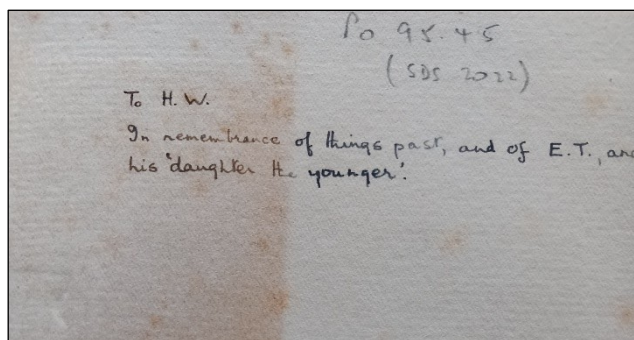 Po 95.45
(SDS 2022)
To H.W.
In remembrance of things past, and of E.T., and
his 'daughter the younger'.